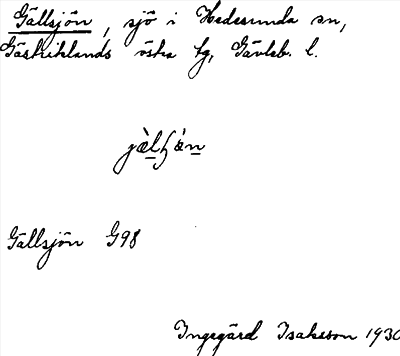 Gällsjön, sjö i Hedesunda sn,
Gästriklands östra tg, Gävleb. l.
Gällsjön G98
Ingegärd Isaksson 1930